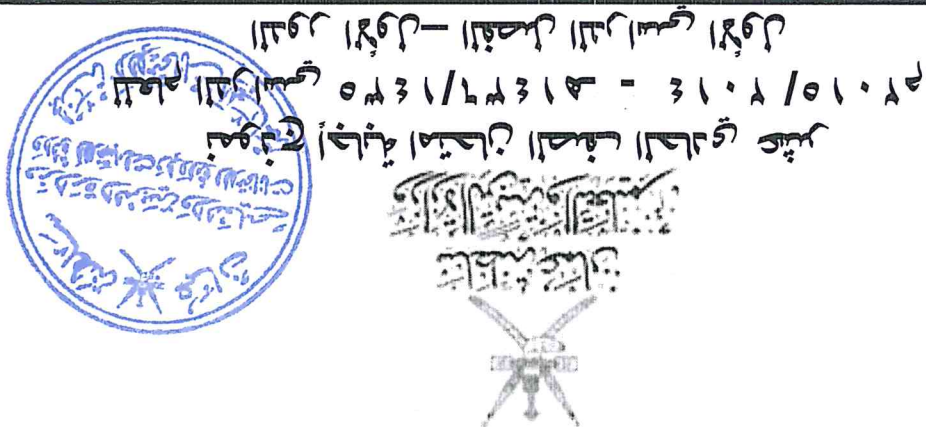 سلطنة عمان
وزارة التربية والتعليم
نموذج إجابة امتحان الصف الحادي عشر
للعام الدراسي ١٤٣٥/١٤٣٦ هـ - ٢٠١٤ / ٢٠١٥م
الدور الأول – الفصل الدراسي الأول